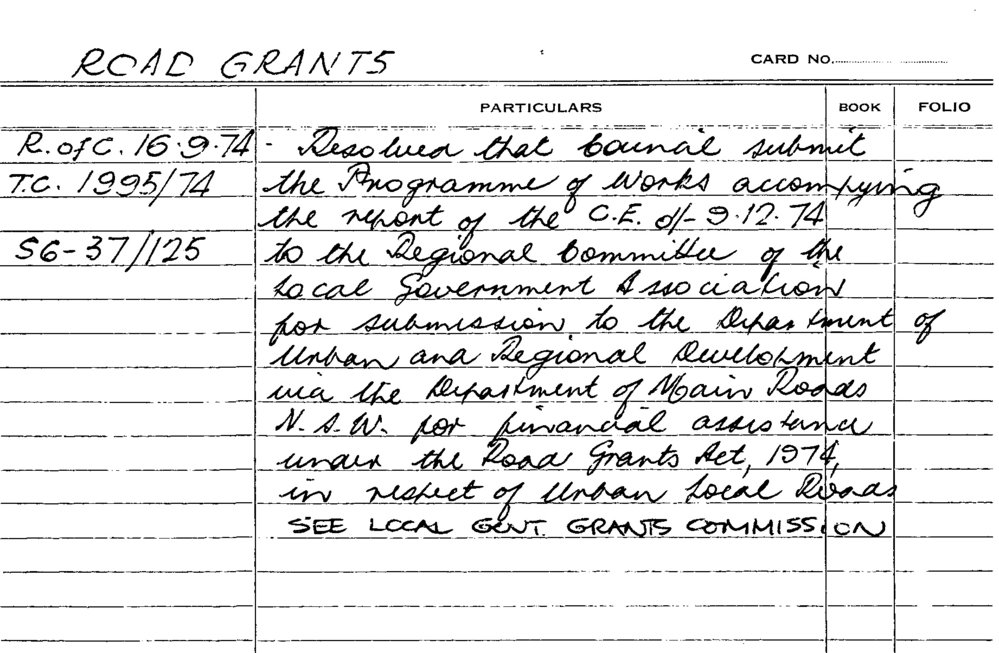 ROAD GRANTS
CARD No.
PARTICULARS BOOK FOLIO
R. of C. 16.9.74 - Resolved that Council submit
T.C. 1995/74 the Programme of Works accompying
the report of the C.E. d/- 9.12.74
S6-37/125 to the Regional Committee of the
Local Government Association
for submission to the Department of
Urban and Regional Development
via the Department of Main Roads
N.S.W. for financial assistance
under the Road Grants Act, 1974,
in respect of Urban Local Roads
SEE LOCAL GOVT. GRANTS COMMISSION